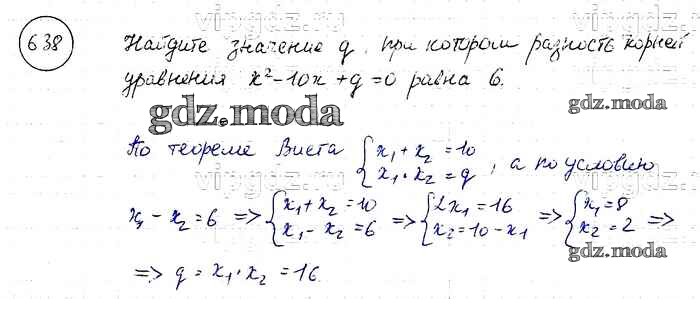 638
Найдите значение q, при котором разность корней
уравнения x²-10x+q=0 равна 6.
gdz.moda
gdz.moda
По теореме Виета { x₁+x₂=10 x₁·x₂=q , а по условию
x₁-x₂=6 => { x₁+x₂=10 x₁-x₂=6 => { 2x₁=16 x₂=10-x₁ => { x₁=8 x₂=2 =>
gdz.moda
=> q=x₁·x₂=16.